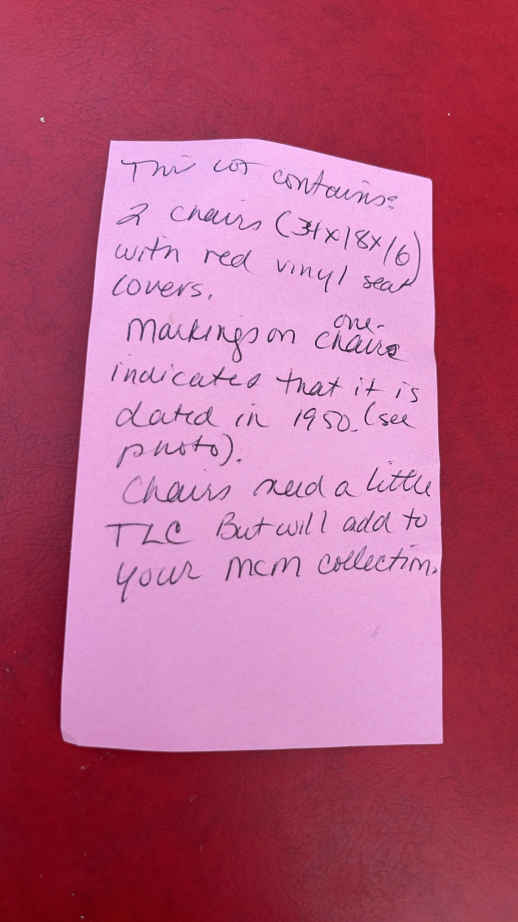 This lot contains:
2 chairs (34x18x16)
with red vinyl seat
covers.
Markings on one chair
indicates that it is
dated in 1950. (see
photo).
Chairs need a little
TLC But will add to
your mcm collection.